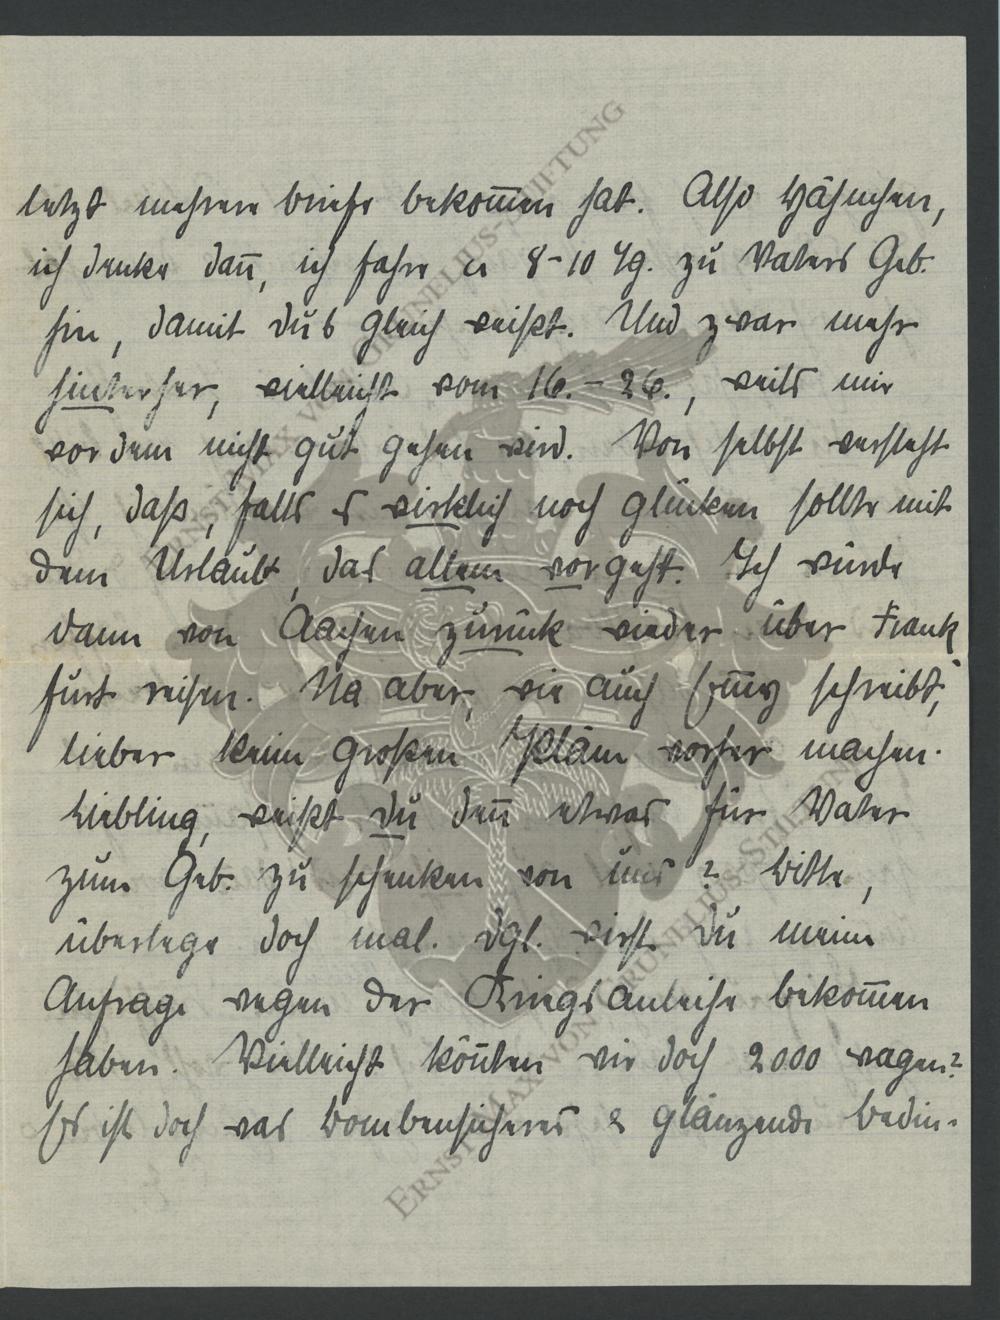 letzt mehrere Briefe bekom̅en hat. Also Hähnchen,
ich denke dan̅, ich fahre ca 8-10 Tg. zu Vaters Geb.
hin, damit du's gleich weißt. Und zwar mehr
hinterher, vielleicht vom 16. - 26., weils mir
vordem nicht gut gehen wird. Von selbst versteht
sich, daß, falls es wirklich noch glücken sollte mit
dem Urlaub, das allem vorgeht. Ich würde
dann von Aachen zurück wieder über Frank
furt reisen. Na aber, wie auch schreibt,
lieber keine großen Pläne vorher machen.
Liebling, weißt du den̅ etwas für Vater
zum Geb. zu schenken von uns? Bitte,
überlege doch mal. Vgl. wirst du meine
Anfrage wegen der Kriegsanleihe bekom̅en
haben. Vielleicht kön̅ten wir doch 2000 wagen?
Es ist doch was Bombensicheres & glänzende Bedin-
ERNST MAX VON GRUNELIUS-STIFTUNG
ERNST MAX VON GRUNELIUS-STIFTUNG